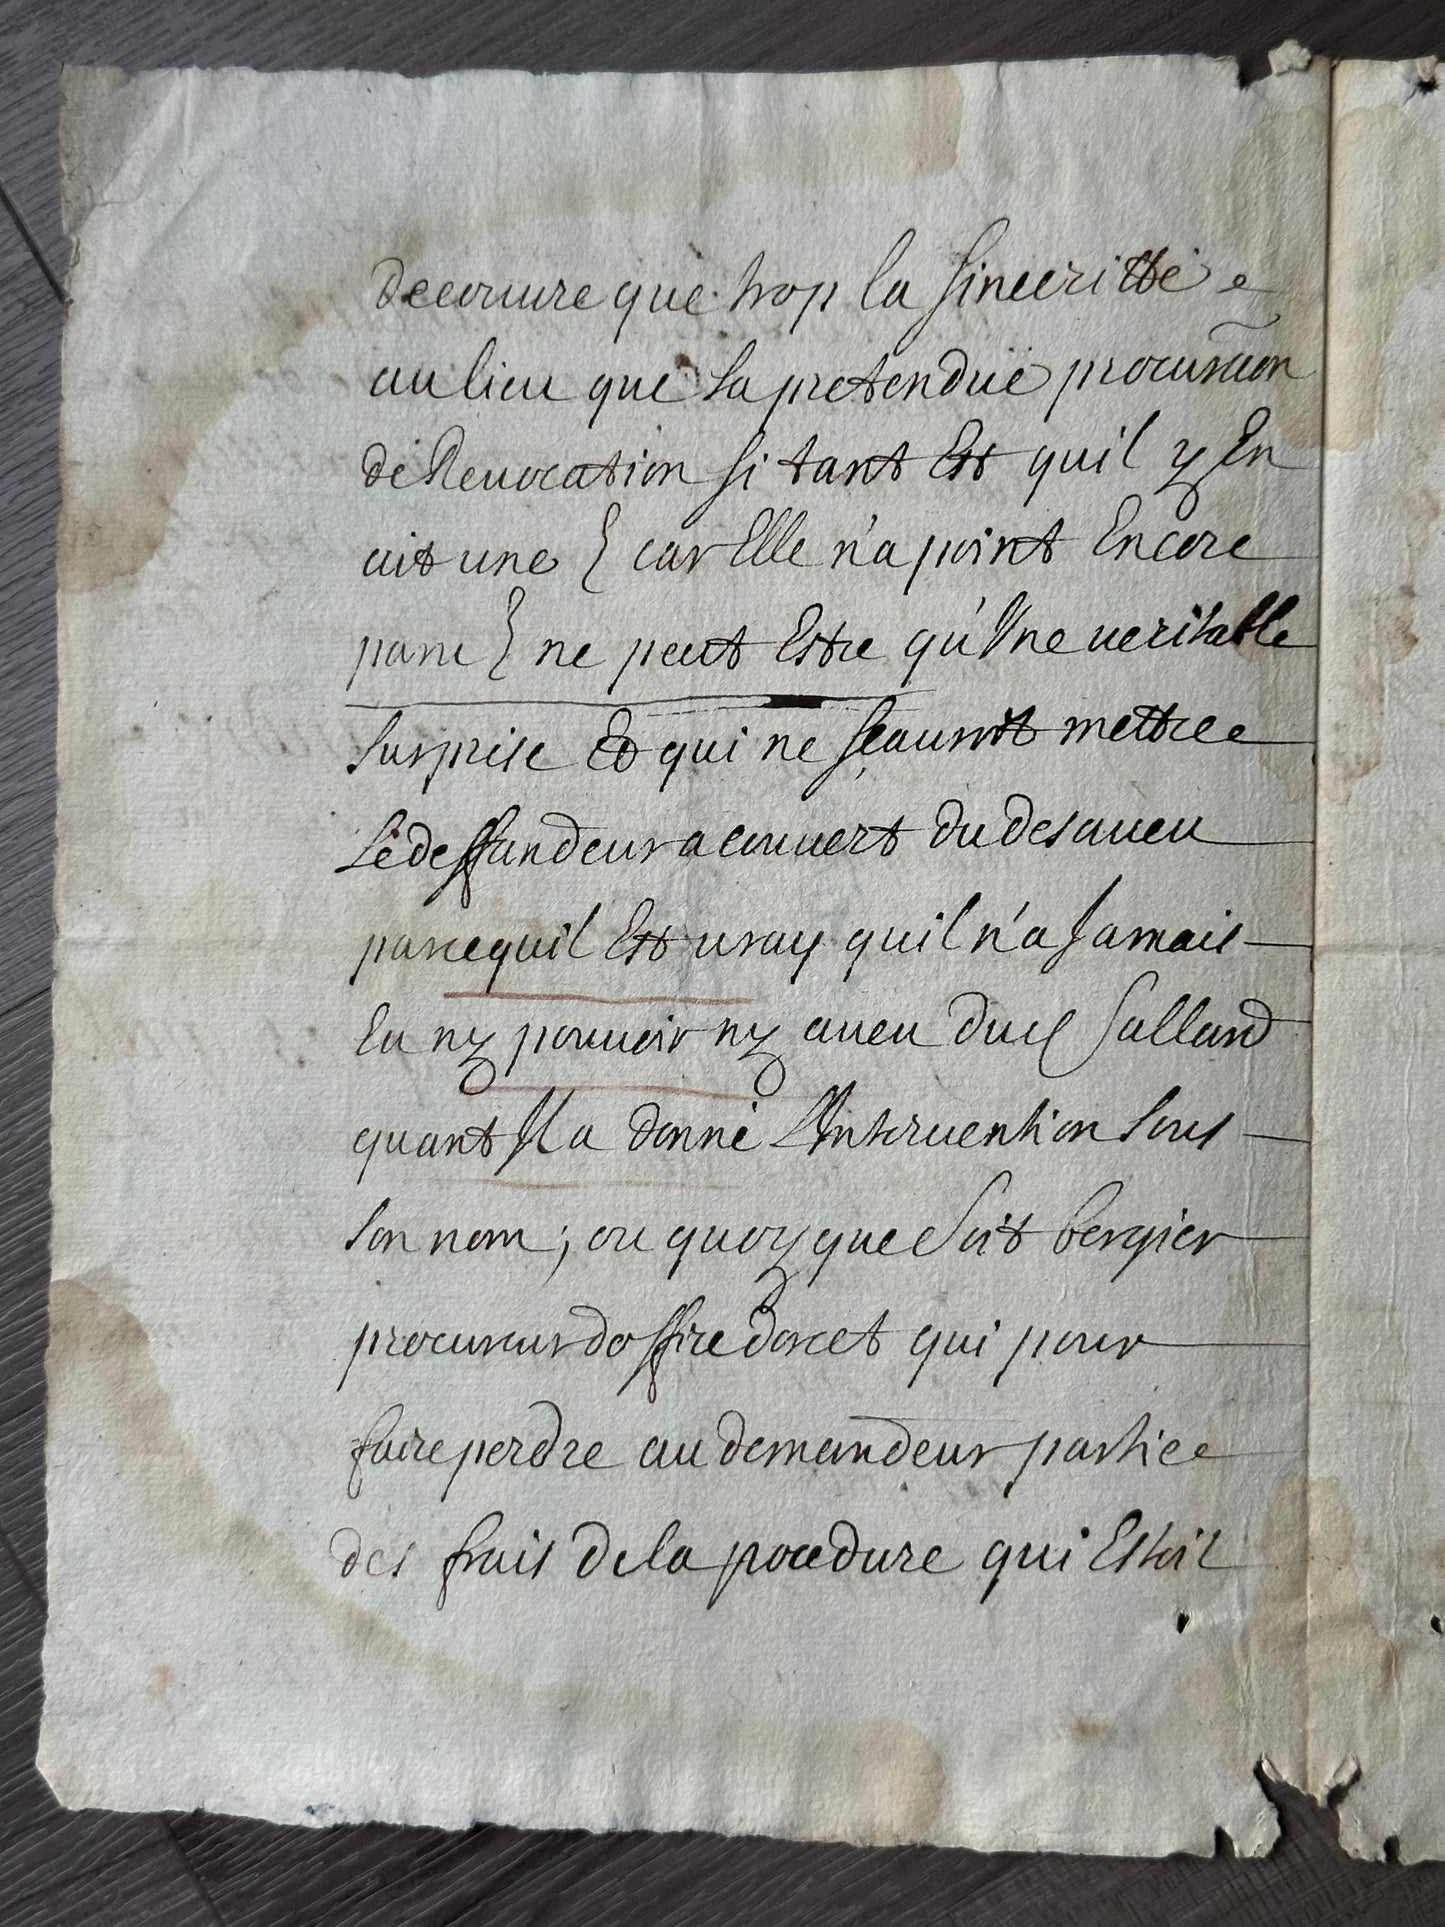 decouure que trop la sinceritté
au lieu que la pretenduë procuraõn
de Reuocation si tant Est quil y En
ait une { car Elle n'a point Encore
paru } ne peut Estre qu'Une veritable
surprise Et qui ne sçauroit mettre
Le deffandeur a couuert du desaueu
parcequil Est uray quil n'a Jamais
Eu ny pouuoir ny aueu dud Salland
quant Il a donné L'Interuention sous
son nom ; ou quoy que soit bergier
procureur doffire dorcet qui pour
faire perdre au demandeur partie
des frais de la pocedure qui Estoit